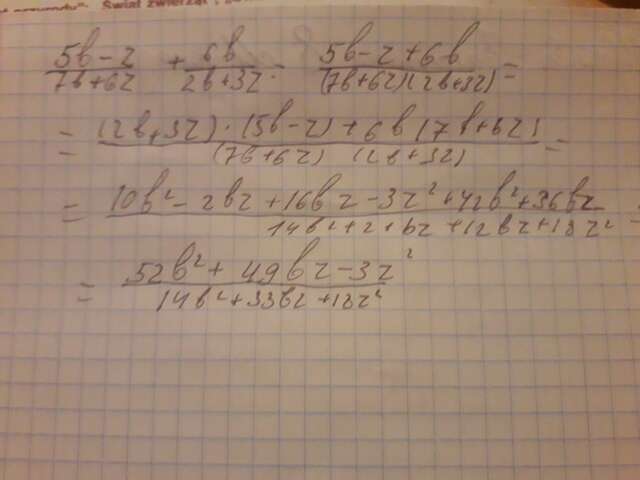 Świat zwierząt
(5b-z)/(7b+6z) + 6b/(2b+3z) = (5b-z+6b)/((7b+6z)(2b+3z)) =
= ((2b+3z)·(5b-z)+6b(7b+6z))/((7b+6z) (2b+3z)) =
= (10b²-2bz+16bz-3z²+42b²+36bz)/(14b²+2+bz+12bz+18z²) =
= (52b²+49bz-3z²)/(14b²+33bz+18z²)